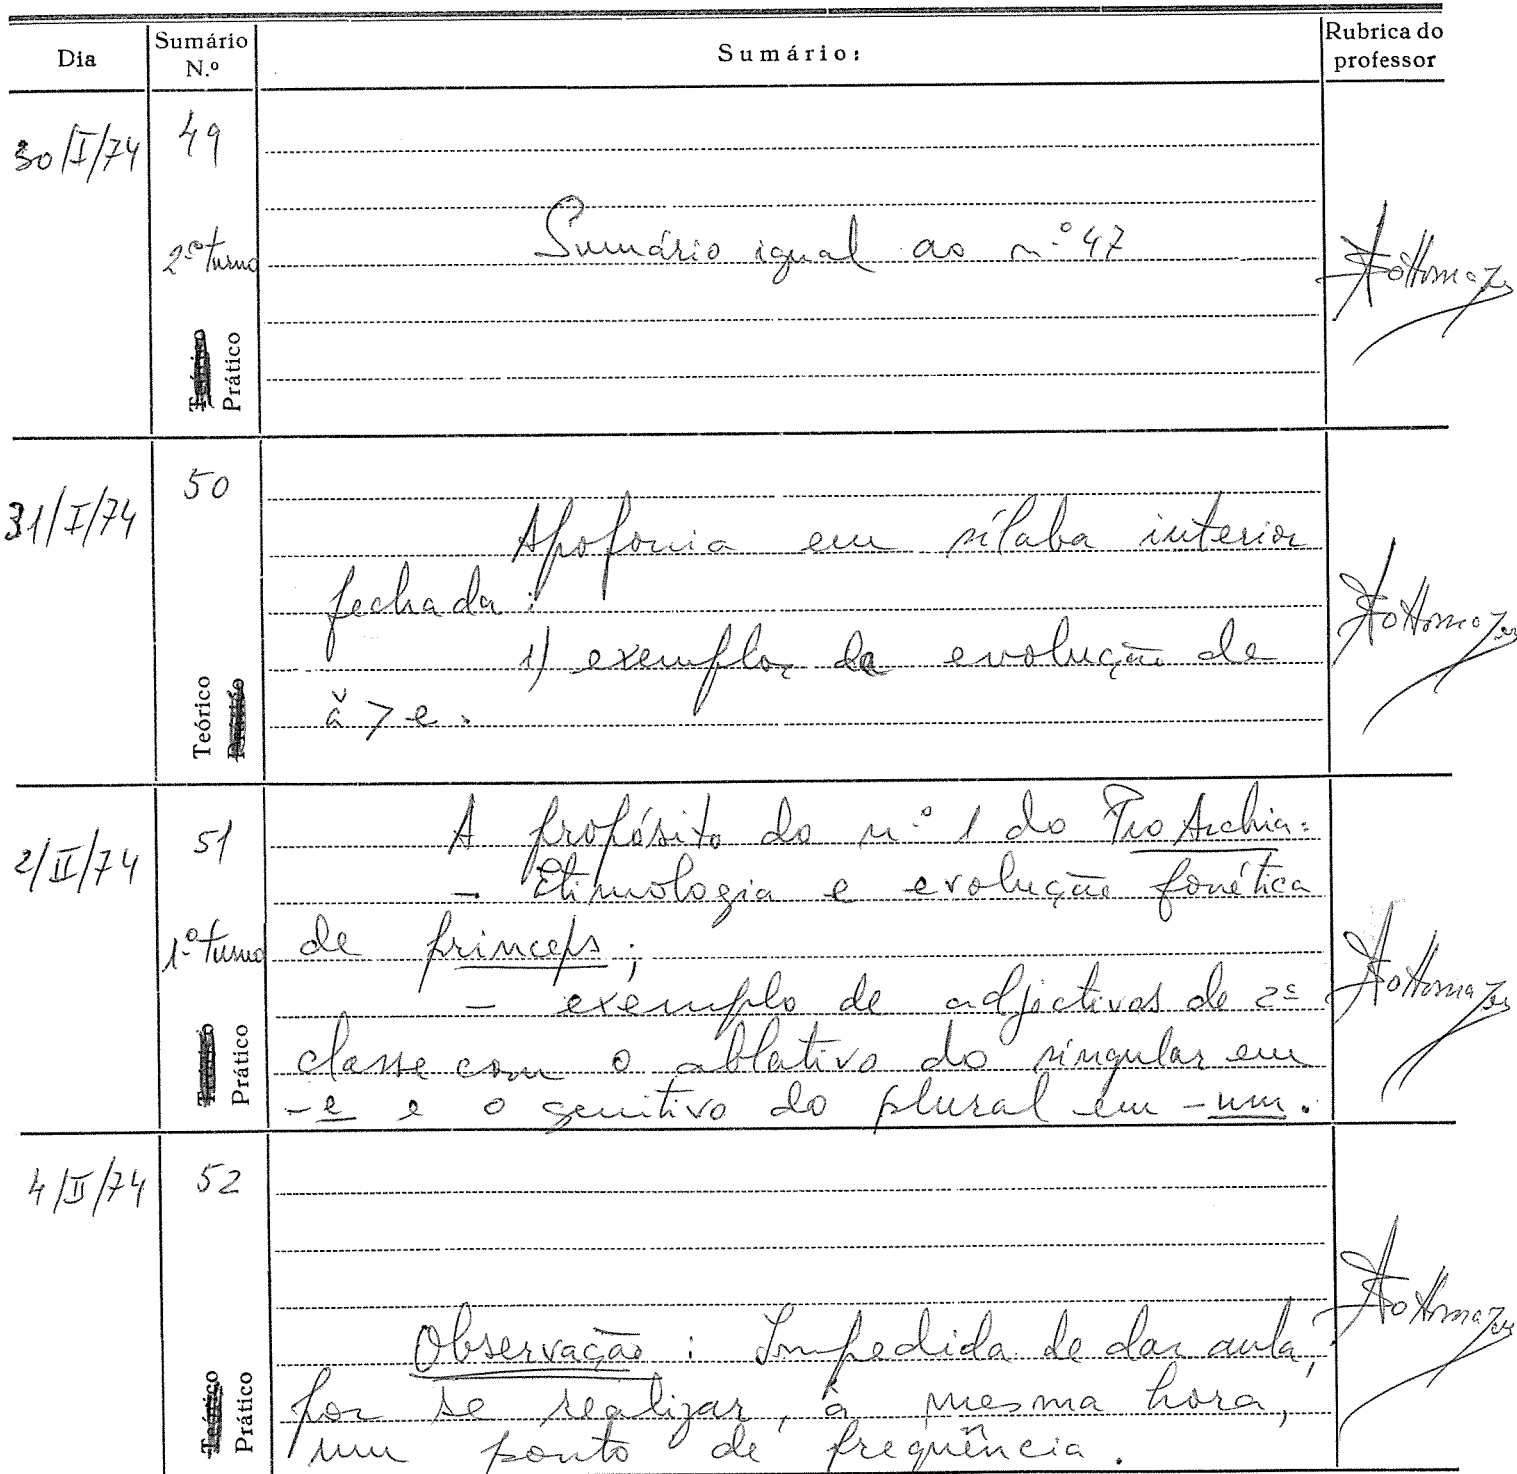 Dia
Sumário N.º
Sumário:
Rubrica do professor
30/I/74
49
2º turno
Teórico
Prático
Sumário igual ao nº 47
31/I/74
50
Teórico
Prático
Apofonia em sílaba interior
fechada:
1) exemplos da evolução de
ă > e.
2/II/74
51
1º turno
Teórico
Prático
A propósito do nº 1 do Pro Archia:
- Etimologia e evolução fonética
de princeps;
- exemplo de adjectivos de 2ª
classe com o ablativo do singular em
-e e o genitivo do plural em -um.
4/II/74
52
Teórico
Prático
Observação: Impedida de dar aula,
por se realizar, à mesma hora,
um ponto de frequência.